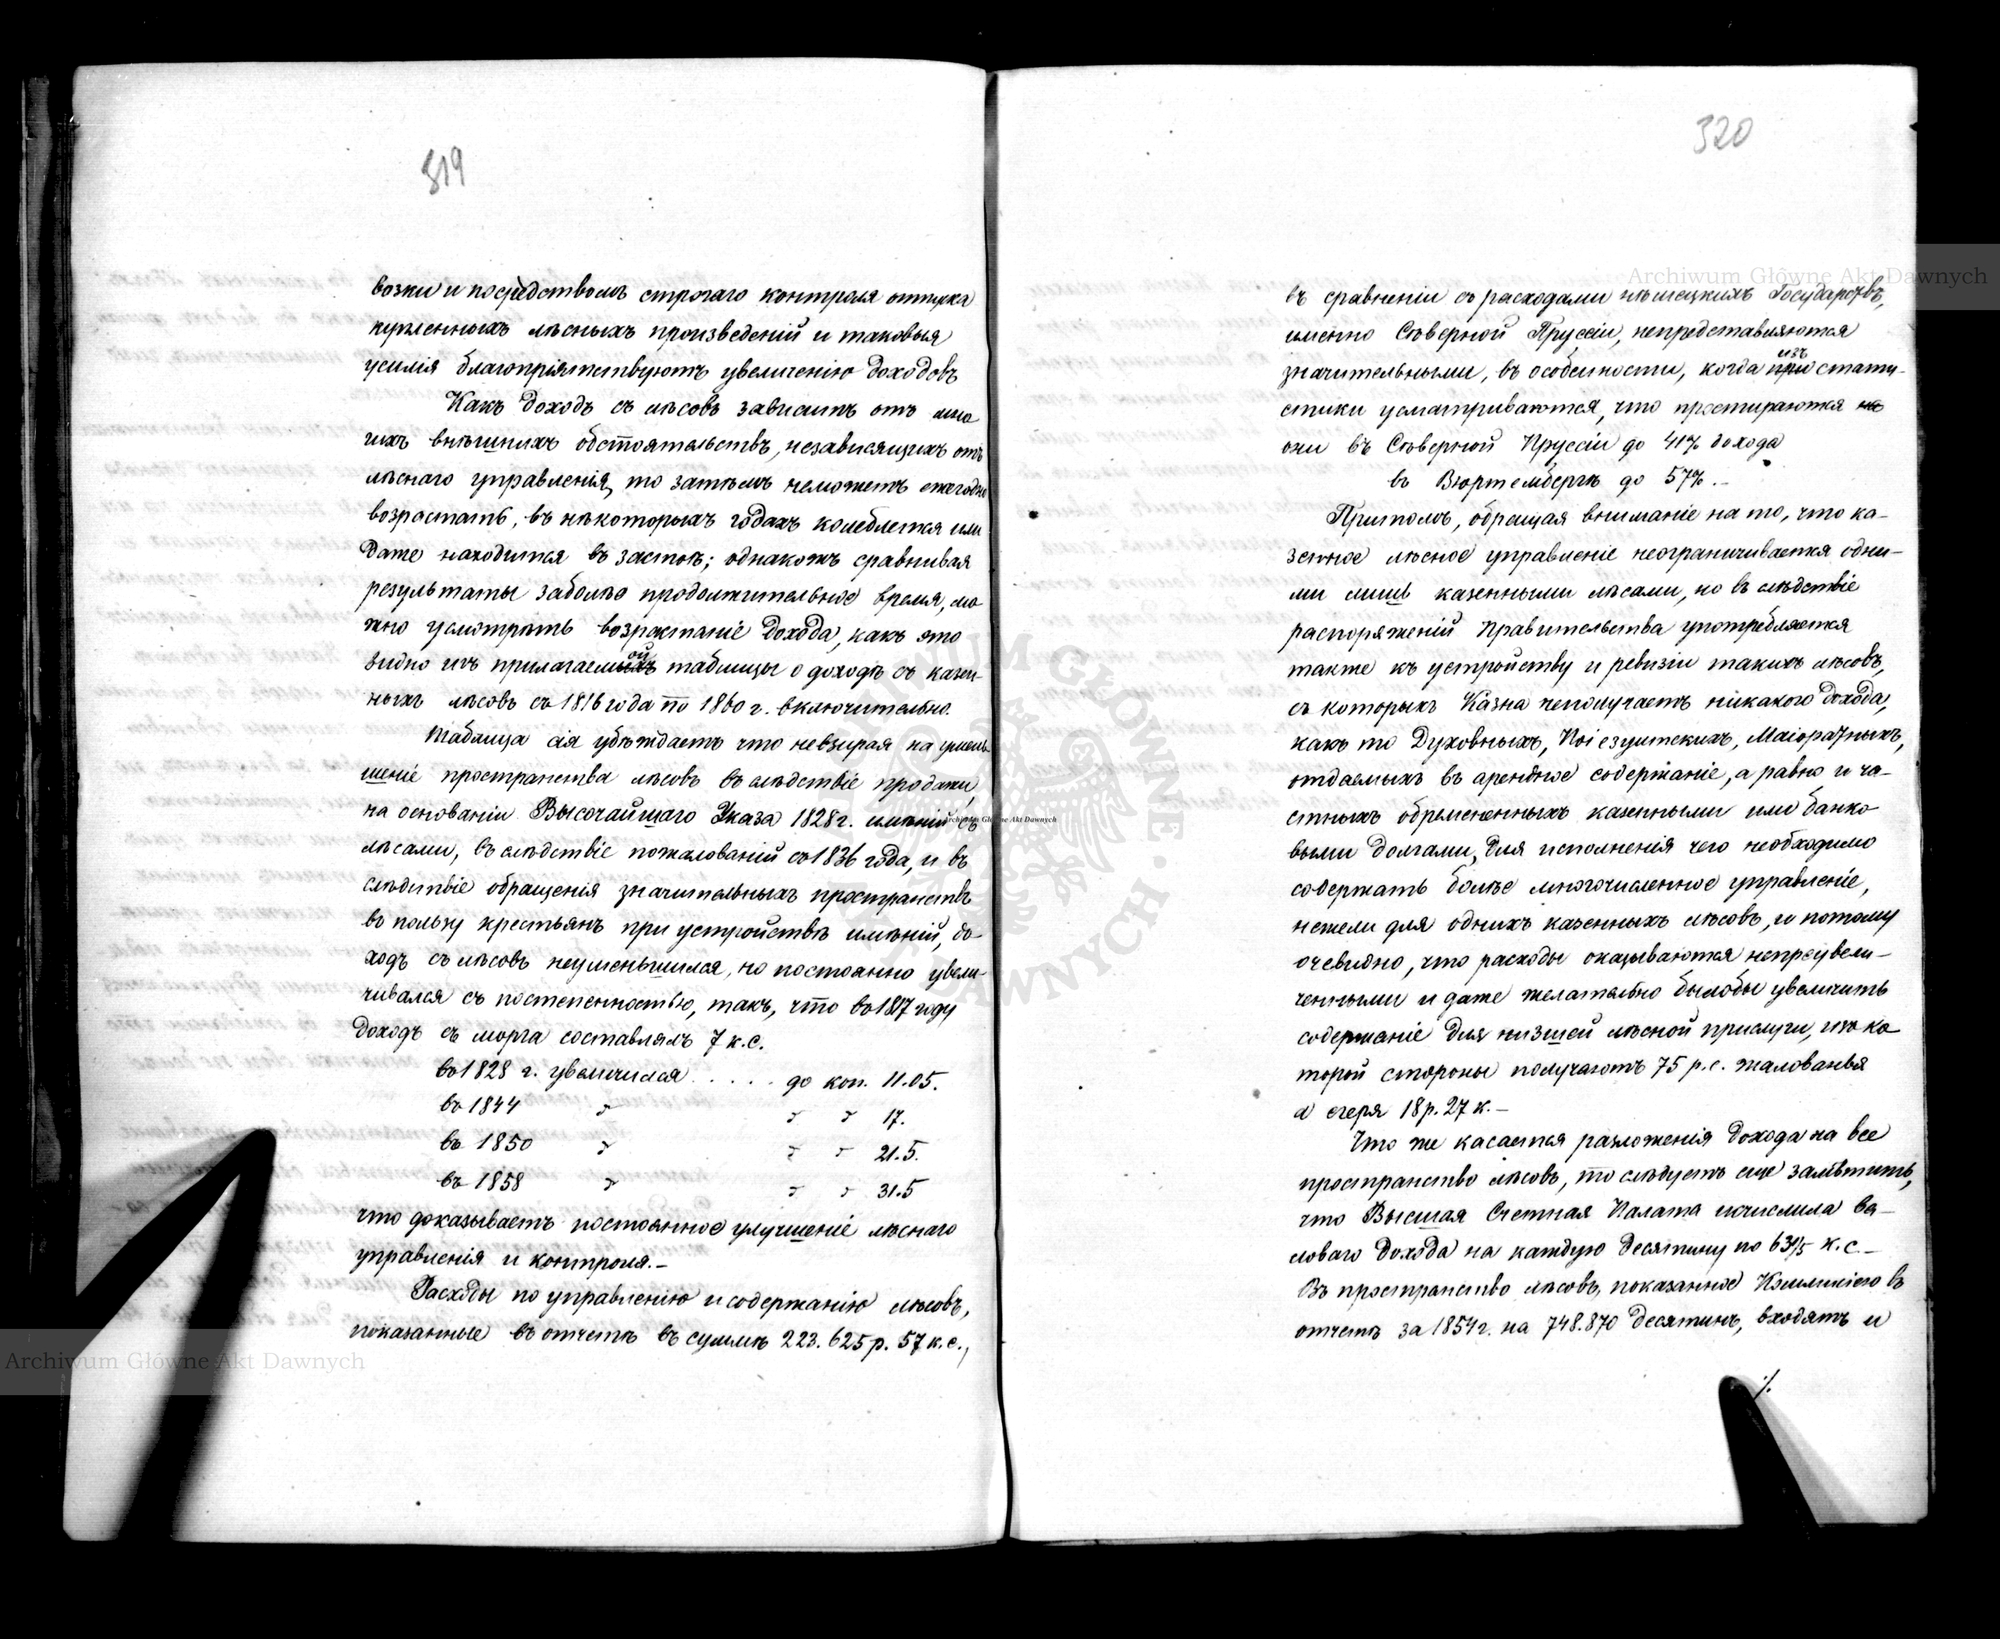 319
возки и посредствомъ строгаго контроля отпуска
купленныхъ лѣсныхъ произведеній и таковыя
усилія благопріятствуютъ увеличенію доходовъ
Какъ доходъ съ лѣсовъ зависитъ отъ мно
гихъ внѣшнихъ обстоятельствъ, независящихъ отъ
лѣснаго управленія, то затѣмъ неможетъ ежегодно
возростать, въ нѣкоторыхъ годахъ колеблется или
даже находится въ застоѣ; однакожъ сравнивая
результаты заболѣе продолжительное время, мо
жно усмотрѣть возрастаніе дохода, какъ это
видно изъ прилагаемой таблицы о доходѣ съ казен-
ныхъ лѣсовъ съ 1816 года по 1860 г. включительно.
Таблица сія убѣждаетъ что невзирая на умень
шеніе пространства лѣсовъ въ слѣдствіе продажи,
на основаніи Высочайшаго Указа 1828 г. имѣній съ
лѣсами, въ слѣдствіе пожалованій съ 1836 года, и въ
слѣдствіе обращенія значительныхъ пространствъ
въ пользу крестьянъ при устройствѣ имѣній, до-
ходъ съ лѣсовъ неуменьшился, но постоянно увели-
чивался съ постепенностью, такъ, что въ 1817 году
доходъ съ морга составлялъ 7 к. с.
въ 1828 г. увеличился . . . . . до коп. 11.05.
въ 1844 " " " 17.
въ 1850 " " " 21.5.
въ 1858 " " " 31.5
что доказываетъ постоянное улучшеніе лѣснаго
управленія и контроля.–
Расходы по управленію и содержанію лѣсовъ,
показанные въ отчетѣ въ суммѣ 223.625 р. 57 к. с.,
320
въ сравненіи съ расходами нѣмецкихъ Государствъ,
именно Сѣверной Пруссіи, непредставляются
значительными, въ особенности, когда изъ стати-
стики усматриваются, что простираются
они въ Сѣверной Пруссіи до 41% дохода
въ Вюртембергѣ до 57%.–
Притомъ, обращая вниманіе на то, что ка-
зенное лѣсное управленіе неограничивается одни-
ми лишь казенными лѣсами, но въ слѣдствіе
распоряженій Правительства употребляется
также къ устройству и ревизіи такихъ лѣсовъ,
съ которыхъ Казна неполучаетъ никакого дохода,
какъ то Духовныхъ, Поіезуитскихъ, Маіоратныхъ,
отдаемыхъ въ арендное содержаніе, а равно и ча-
стныхъ обремененныхъ казенными или банко
выми долгами, для исполненія чего необходимо
содержать болѣе многочисленное управленіе,
нежели для однихъ казенныхъ лѣсовъ, и потому
очевидно, что расходы оказываются непреувели-
ченными и даже желательно былобы увеличить
содержаніе для низшей лѣсной прислуги, изъ ко
торой сторожи получаютъ 75 р. с. жалованья
а егеря 18 р. 27 к.–
Что же касается разложенія дохода на все
пространство лѣсовъ, то слѣдуетъ еще замѣтить,
что Высшая Счетная Палата исчислила ва-
ловаго дохода на каждую десятину по 63 1/5 к. с.–
Въ пространство лѣсовъ, показанное Коммисіею въ
отчетѣ за 1854 г. на 748.870 десятинъ, входятъ и
./.
Archiwum Główne Akt Dawnych
Archiwum Główne Akt Dawnych
Archiwum Główne Akt Dawnych